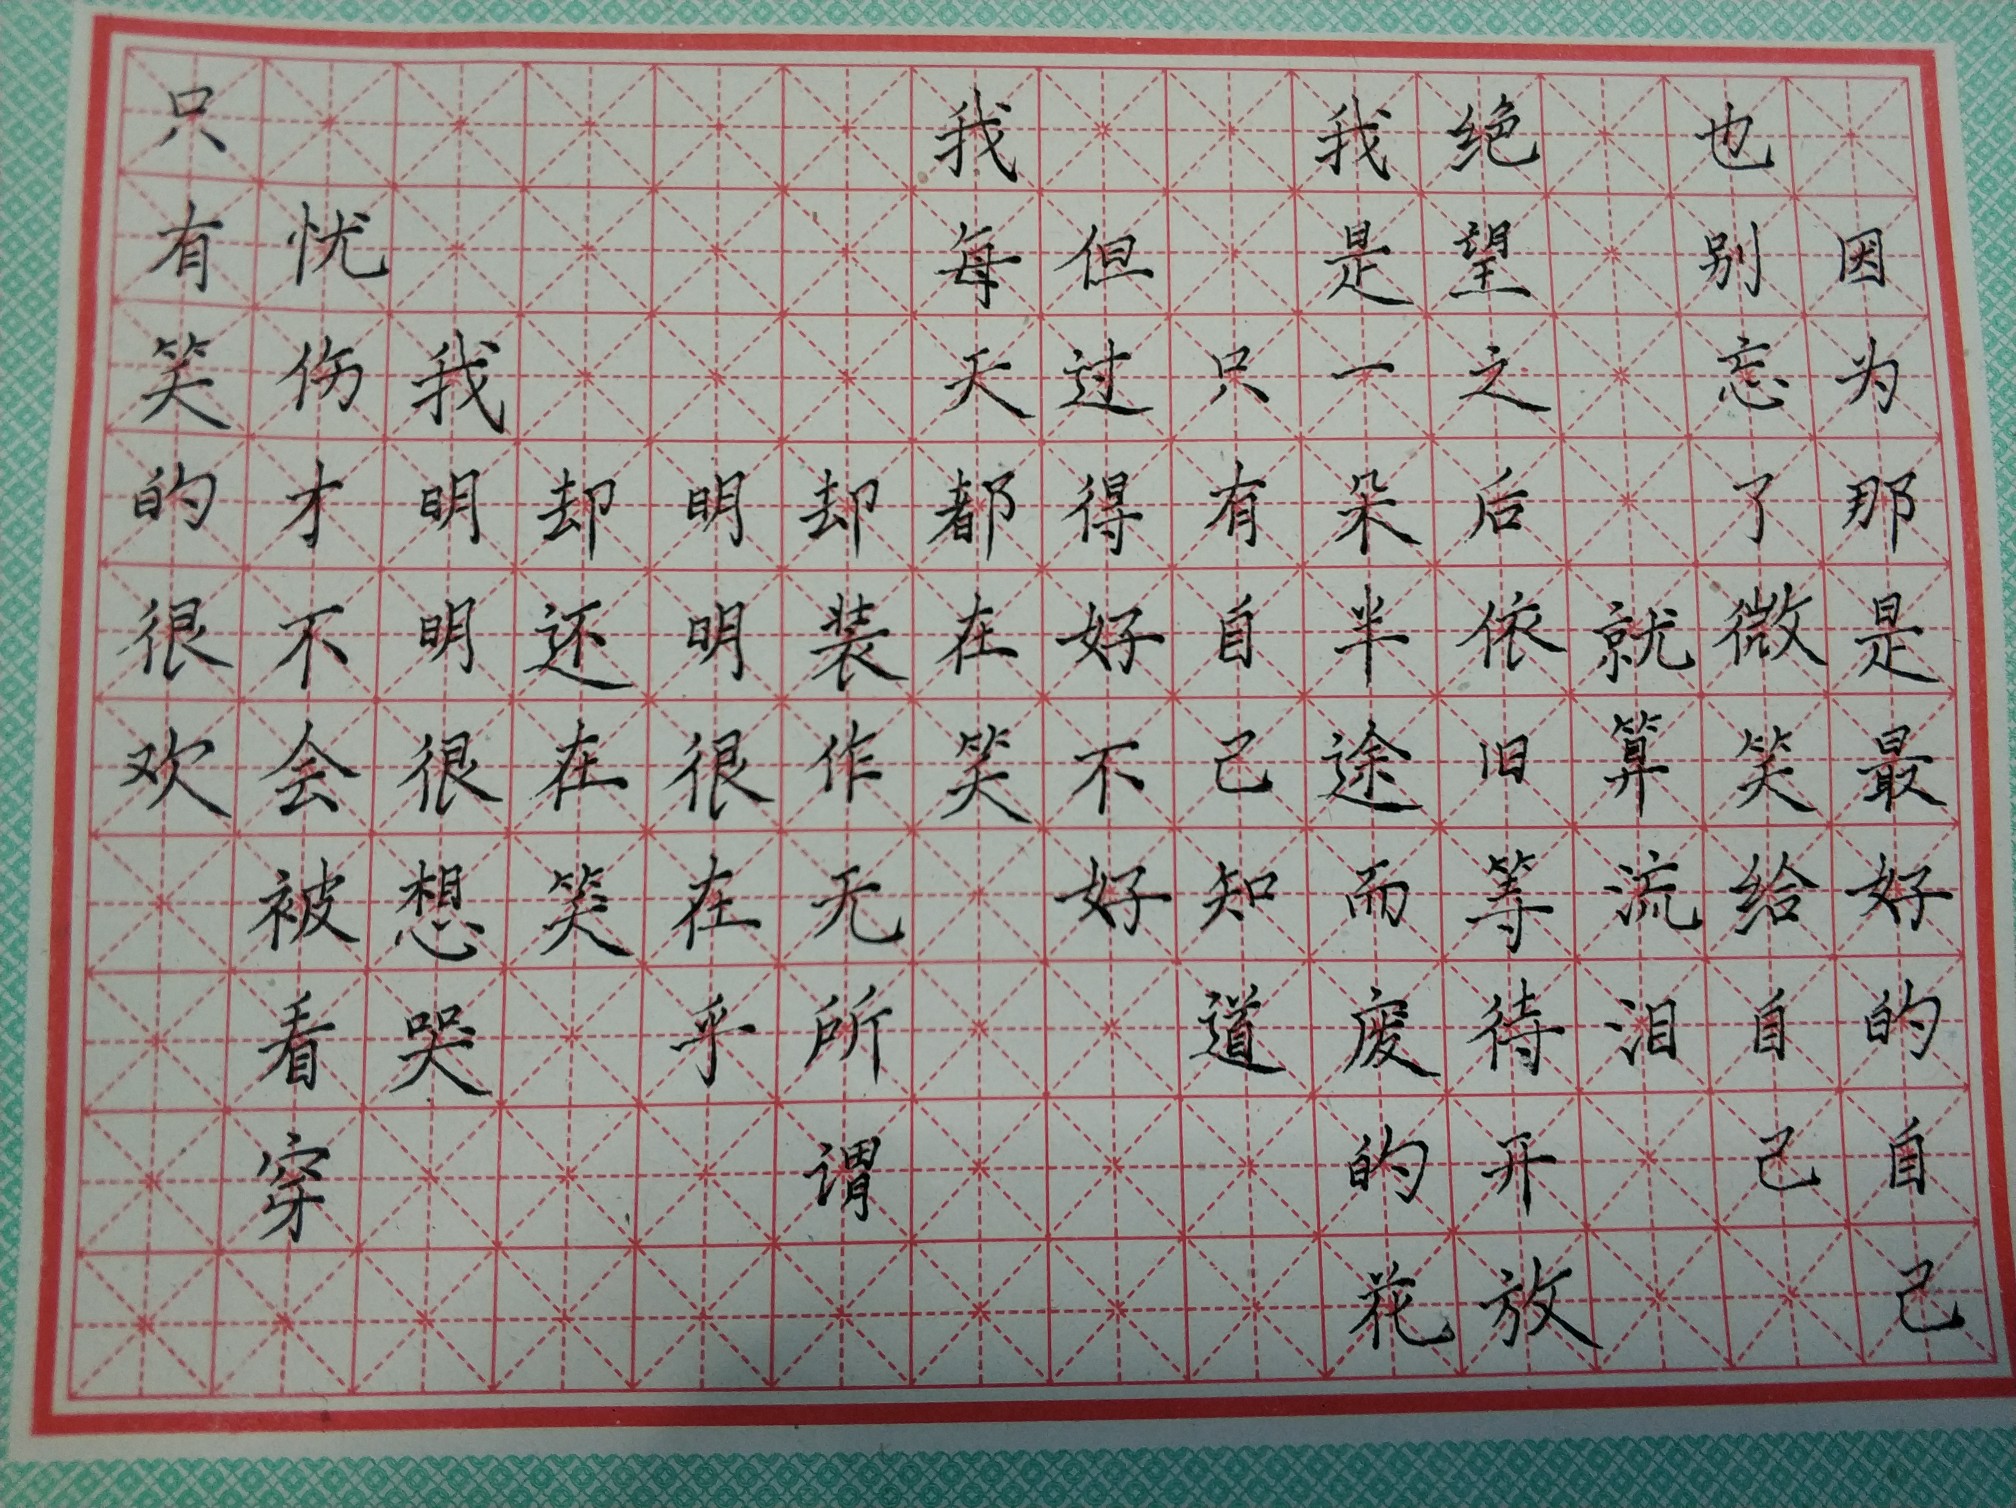 只有笑的很欢
忧伤才不会被看穿
我明明很想哭
却还在笑
明明很在乎
却装作无所谓
我每天都在笑
但过得好不好
只有自己知道
我是一朵半途而废的花
绝望之后依旧等待开放
就算流泪
也别忘了微笑给自己
因为那是最好的自己